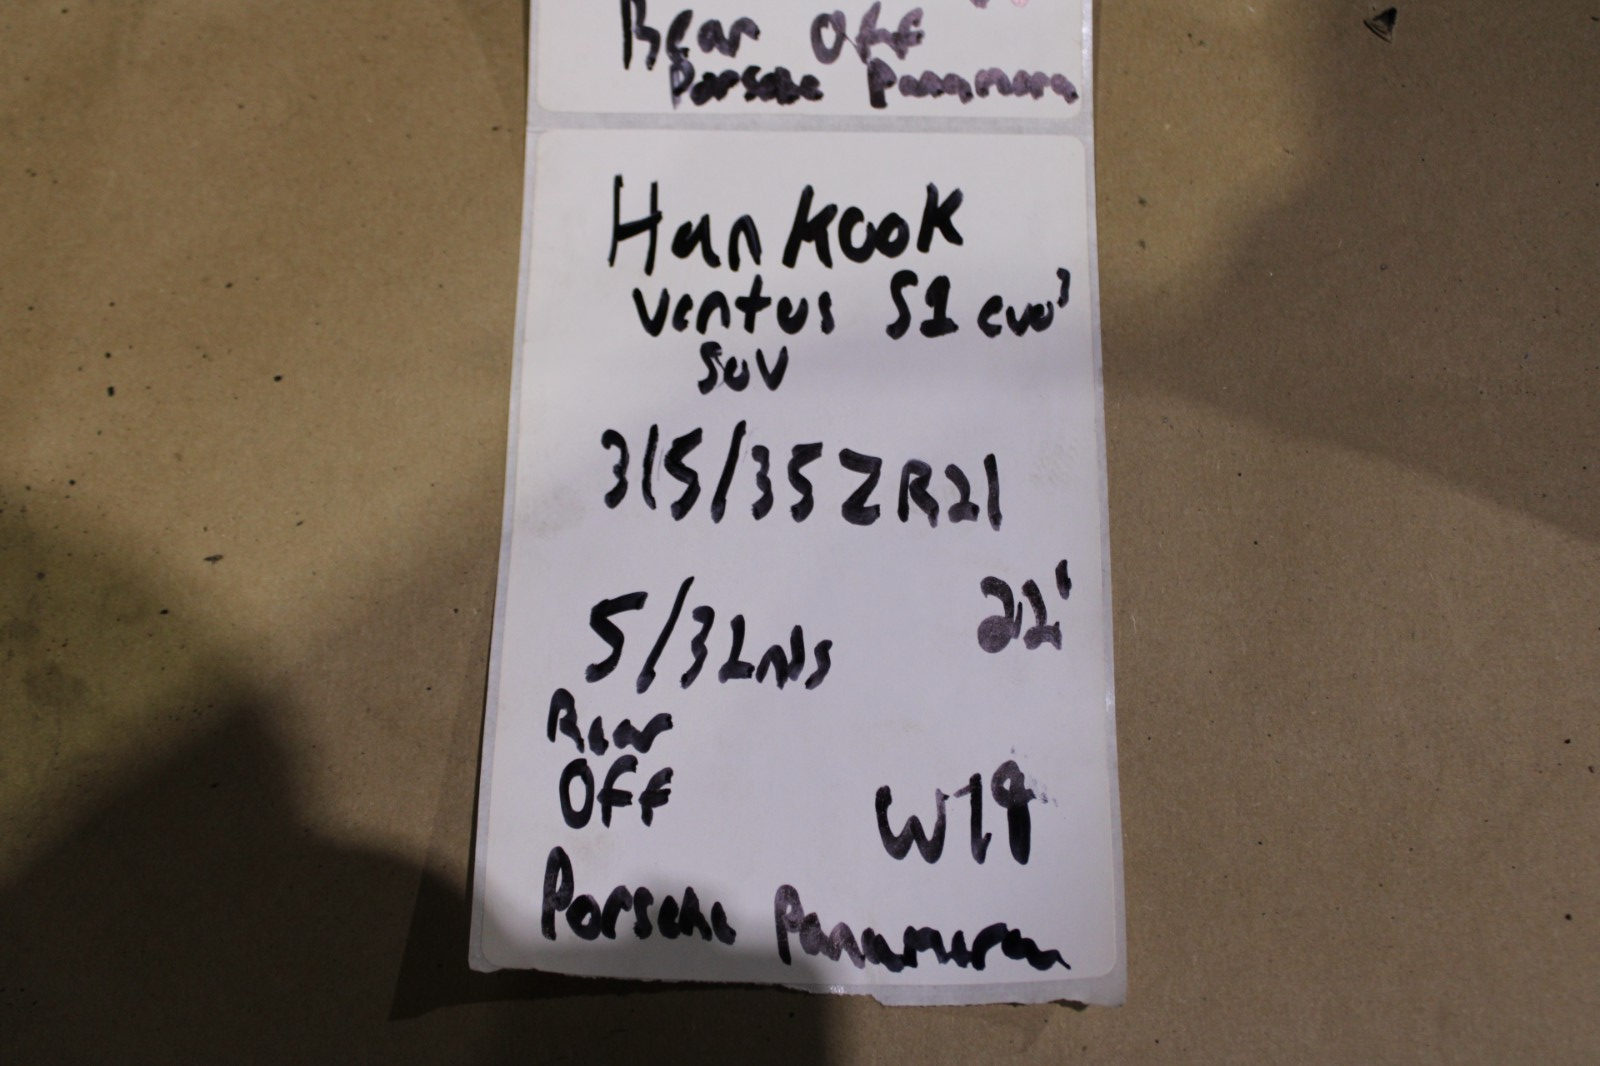 Rear Off
Porsche Panamera
Hankook
Ventus S1 evo³
SUV
315/35ZR21
5/32nds 22'
Rear
Off W19
Porsche Panamera